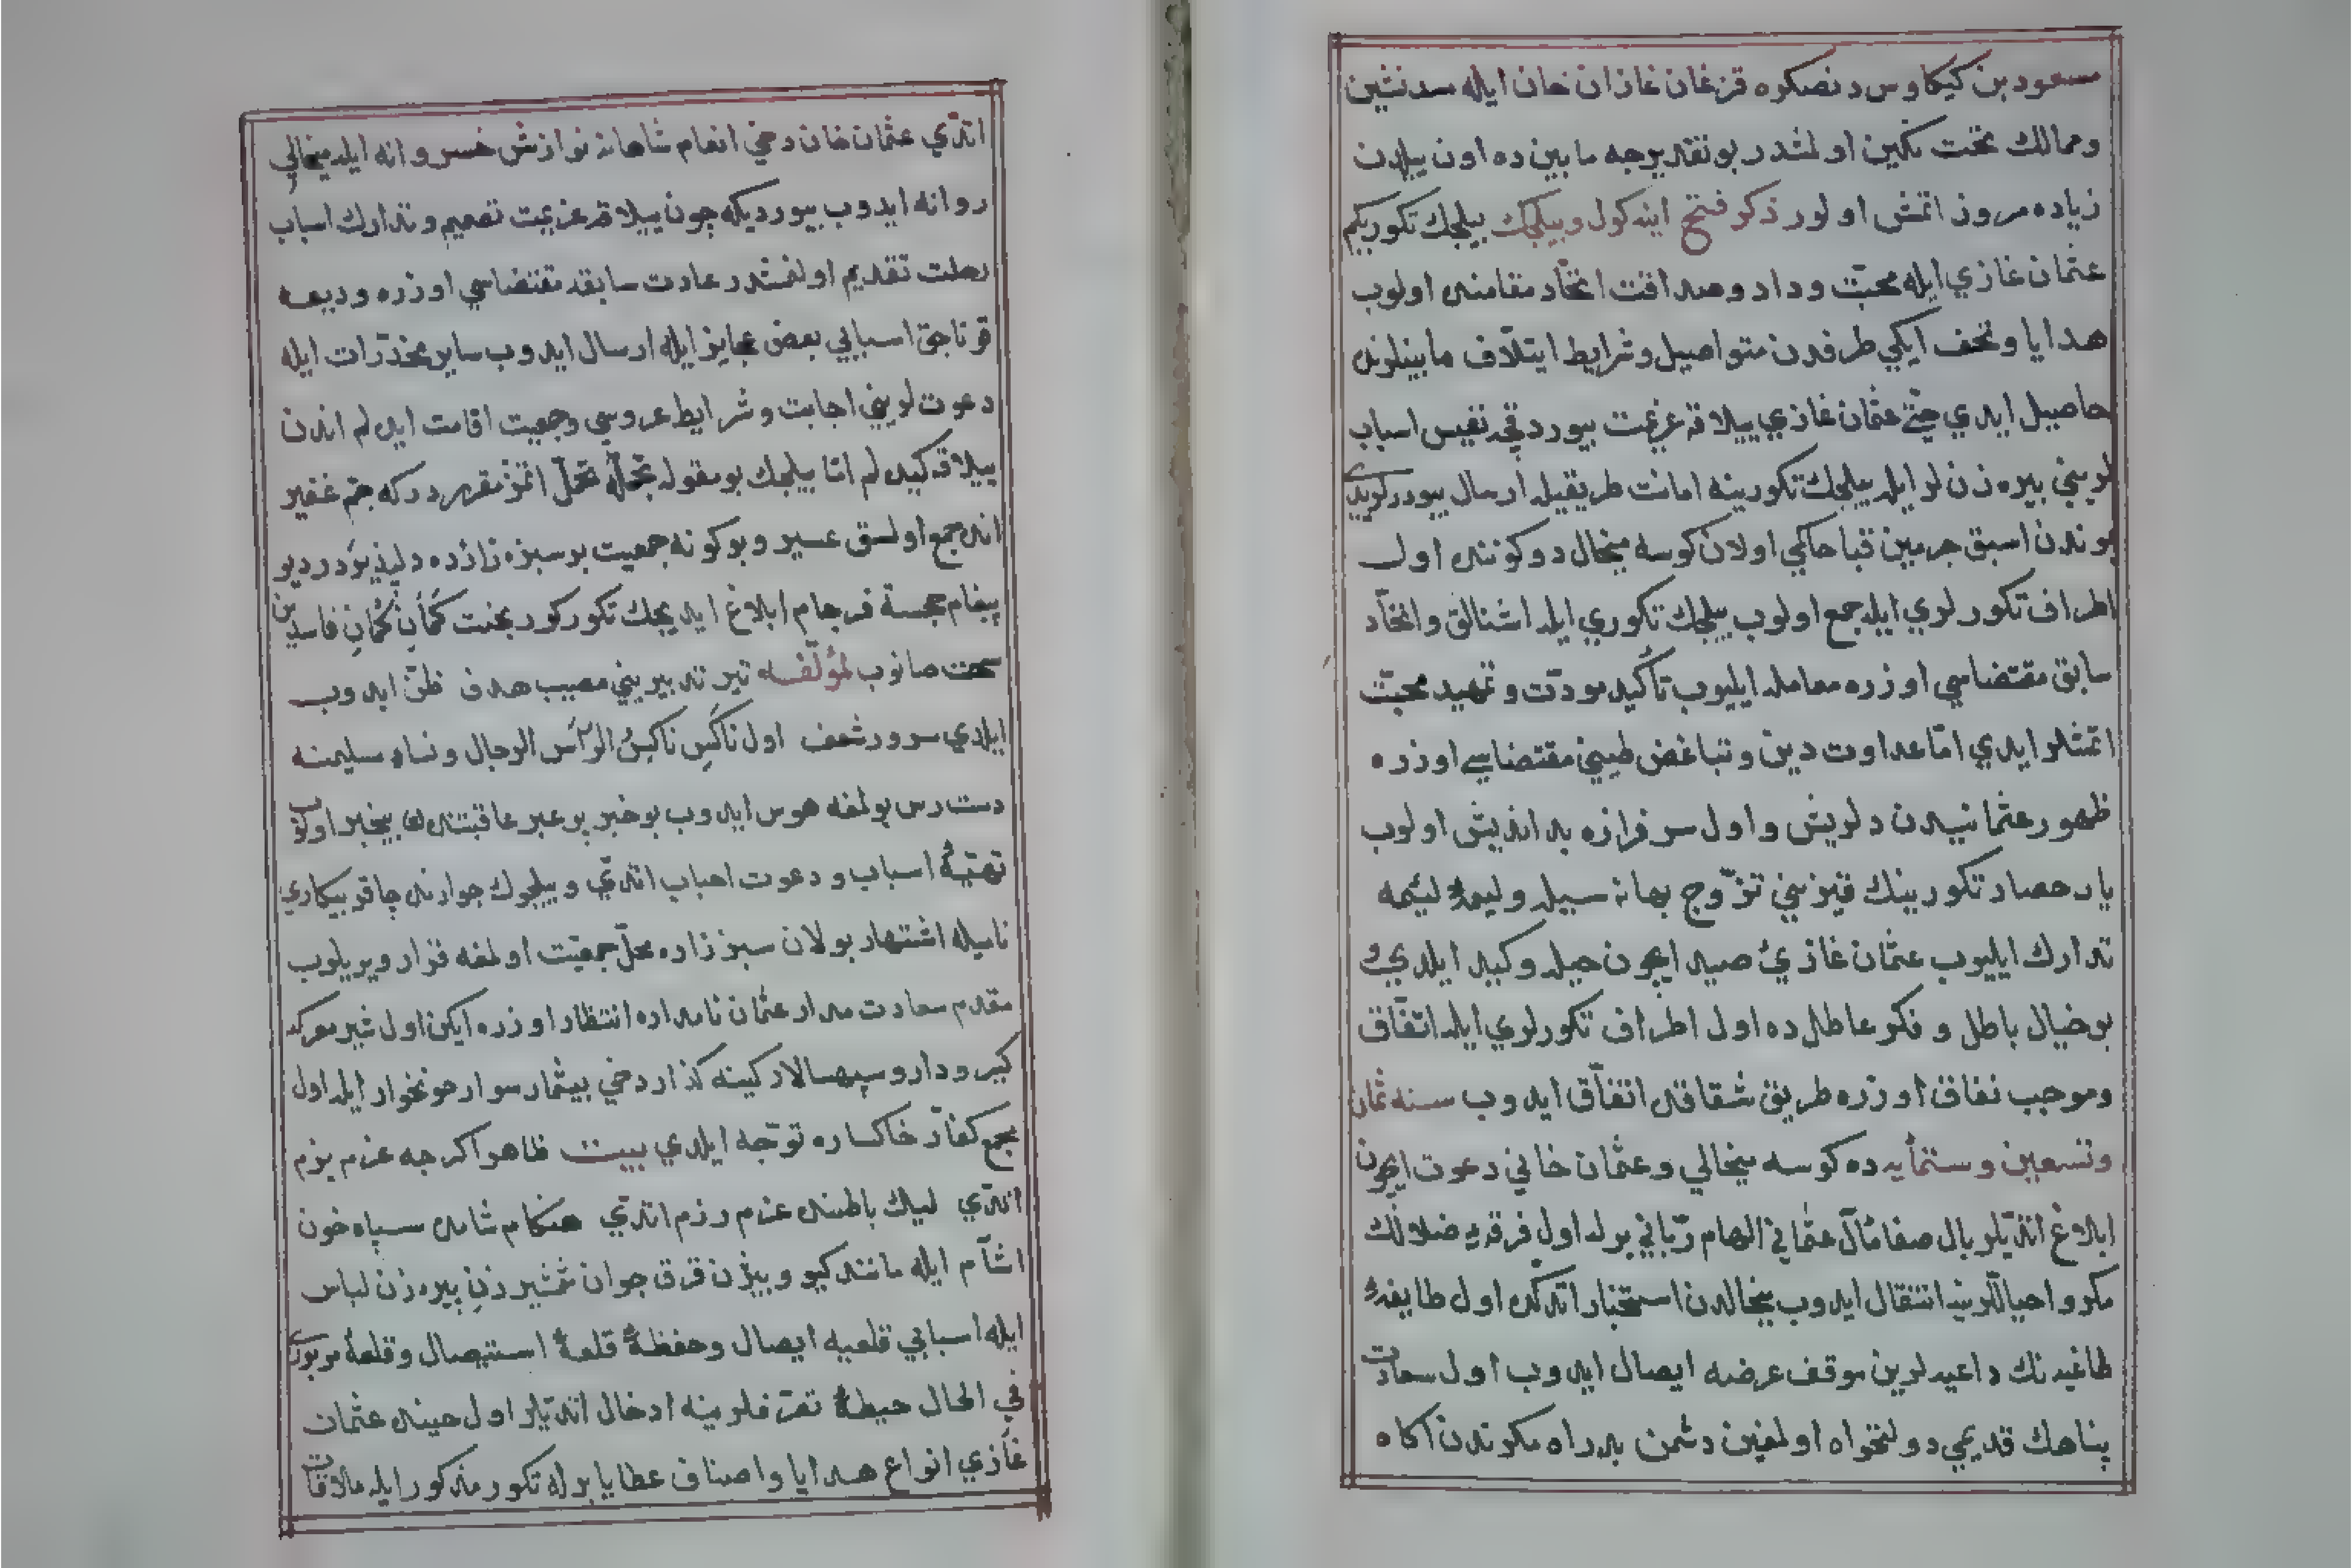 مسعود بن كيكاوس دنصكره قزغان غازان خان ايله سدنشين
وممالك تخت نكين اولمشدر بو تقديرجه مابين ده اون ييلدن
زياده مروز اتمش اولور ذكر فتح اينه كول وبيلجك بيلجك تكوريكم
عثمان غازي ايله محبّت وداد وصداقت اتحّاد مقامنده اولوب
هدايا وتحف ايكي طرفدن متواصيل وشرايط ايتلاف مابينلرنده
حاصيل ايدي حتّي عثمان غازي ييلاقه عزيمت بيوردقجه نفيس اسباب
لريني بيره زن لر ايله بيلجك تكورينه امانت طريقيله ارسال بيوررلريدي
بوندن اسبق جرمين قبا حاكمي اولان كوسه ميخال دوكوننده اول
اطراف تكورلري ايله جمع اولوب بيلجك تكوري ايله اشنالق واتحّاد
سابق مقتضاسي اوزره معامله ايليوب تأكيد مودّت وتمهيد محبّت
اتمشلر ايدي امّا عداوت دين وتباغض طبيني مقتضاسي اوزره
ظهور عثمانييدن دلريش واول سرفرازه بد انديش اولوب
يار حصار تكورينك قيزيني تزوّج بهانه سيله وليمۀ لئيمه
تدارك ايليوب عثمان غازيئ صيد ايچون حيله وكيد ايلديكي
بو خيال باطل وفكر عاطل ده اول اطراف تكورلري ايله اتفّاق
وموجب نفاق اوزره طريق شقاقده اتفّاق ايدوب سنه ثمان
وتسعين وستمأيه ده كوسه ميخالي وعثمان خاني دعوت ايچون
ابلاغ اتديلر بال صفا مآل عثماني الهام ربّاني برله اول فرقۀ ضلالك
مكر واحياللرينه انتقال ايدوب ميخالدن استخبار اتدكده اول طايفۀ
طاغيه نك داعيه لرين موقف عرضه ايصال ايدوب اول سعادت
پناهك قديمي دولتخواه اولمغين دشمن بد راه مكرندن اكاه
اتدي عثمان خان دخي انعام شاهانه نوازش خسروانه ايله ميخالي
روانه ايدوب بيورديكه چون ييلاقه عزيمت تصميم وتدارك اسباب
رحلت تقديم اولنمشدر عادت سابقه مقتضاسي اوزره وديعه
قوناجق اسبابي بعض عجايز ايله ارسال ايدوب ساير مخدّرات ايله
دعوت لريني اجابت وشرايط عروسي وجمعيت اقامت ايده لم اندن
ييلاقه كيده لم امّا بيلجك بومقوله تجمّله تحمّل اتمز مقرردركه جمّ غفير
انده جمع اولمق عسير وبوكونه جمعيت بر سبزه زارده دلپذيردر ديو
پيغام حجسته فرجام ابلاغ ايديجك تكور كور بخت كمان كمان فاسدين
سخت صانوب لمؤلّفه تير تدبيريني مصيب هدف ظنّ ايدوب
ايلدي سرور شعف اول ناكس ناكس الرّأس الرجال ونساء سليمنه
دست رس بولمغه هوس ايدوب بوخبر پر عبر عاقبتنده بيخبر اولوب
تهيّۀ اسباب ودعوت احباب اتدي وبيلجوك جوارنده چاقر بيكاري
ناميله اشتهار بولان سبززاره محلّ جمعيّت اولمغه قرار ويريلوب
مقدم سعادت مدار عثمان نامداره انتظار اوزره ايكن اول شير معركه
كير ودار وسپهسالار كينه كذار دخي بيشمار سوار خونخوار ايله اول
مجمع كفّار خاكساره توجّه ايلدي بيت ظاهرا كرچه عزم بزم
اتدي ليك باطننده عزم رزم اتدي هنكام شامده سپاه خون
اشآم ايله مانند كيو وبيژن قرق جوان شمشير زن پيره زن لباس
ايله اسبابي قلعيه ايصال وحفظۀ قلعۀ استيصال وقلعۀ مزبوره
في الحال حيطۀ تصرّفلرينه ادخال اتديلر اول حينده عثمان
غازي انواع هدايا واصناف عطايا برله تكور مذكور ايله ملاقات